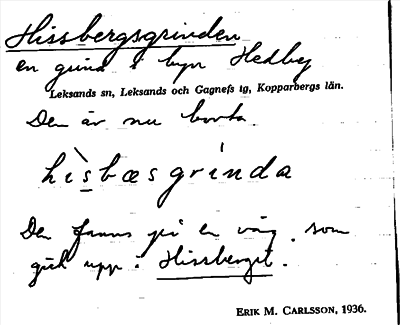 Hissbergsgrinden
en grind i byn Hedby
Leksands sn, Leksands och Gagnefs tg, Kopparbergs län.
Den är nu borta.
hìsbæsgrínda
Den fanns på en väg som
gick upp i Hissberget.
ERIK M. CARLSSON, 1936.